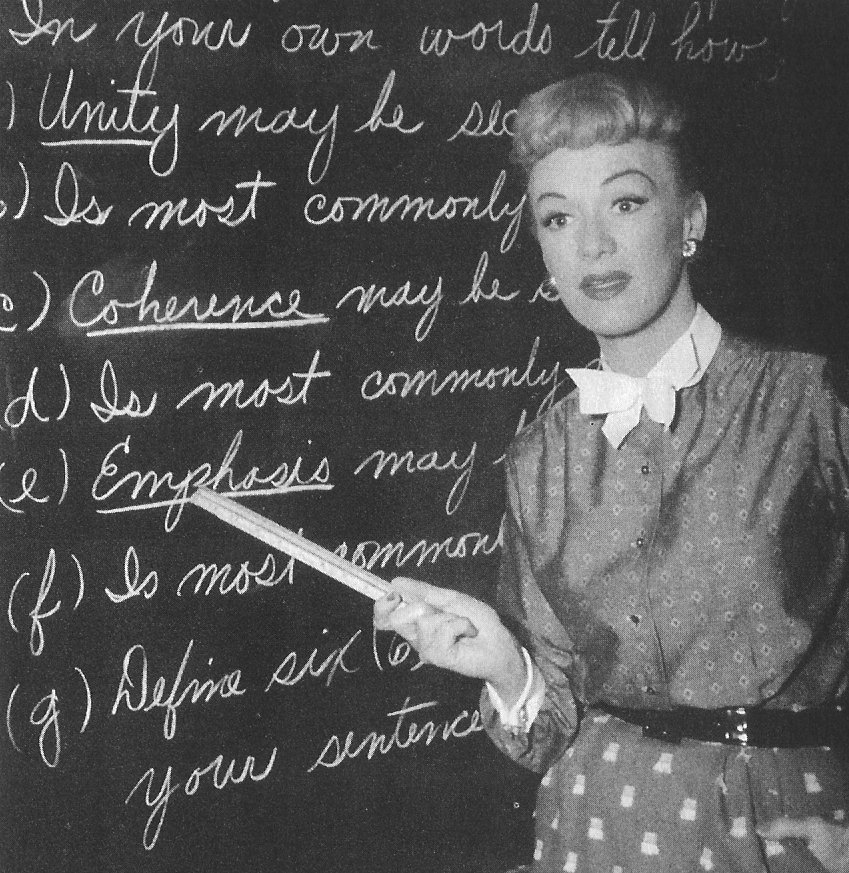 In your own words tell how
) Unity may be sec
) Is most commonly
c) Coherence may be s
d) Is most commonly
(e) Emphasis may
(f) Is most common
(g) Define six (6)
your sentence